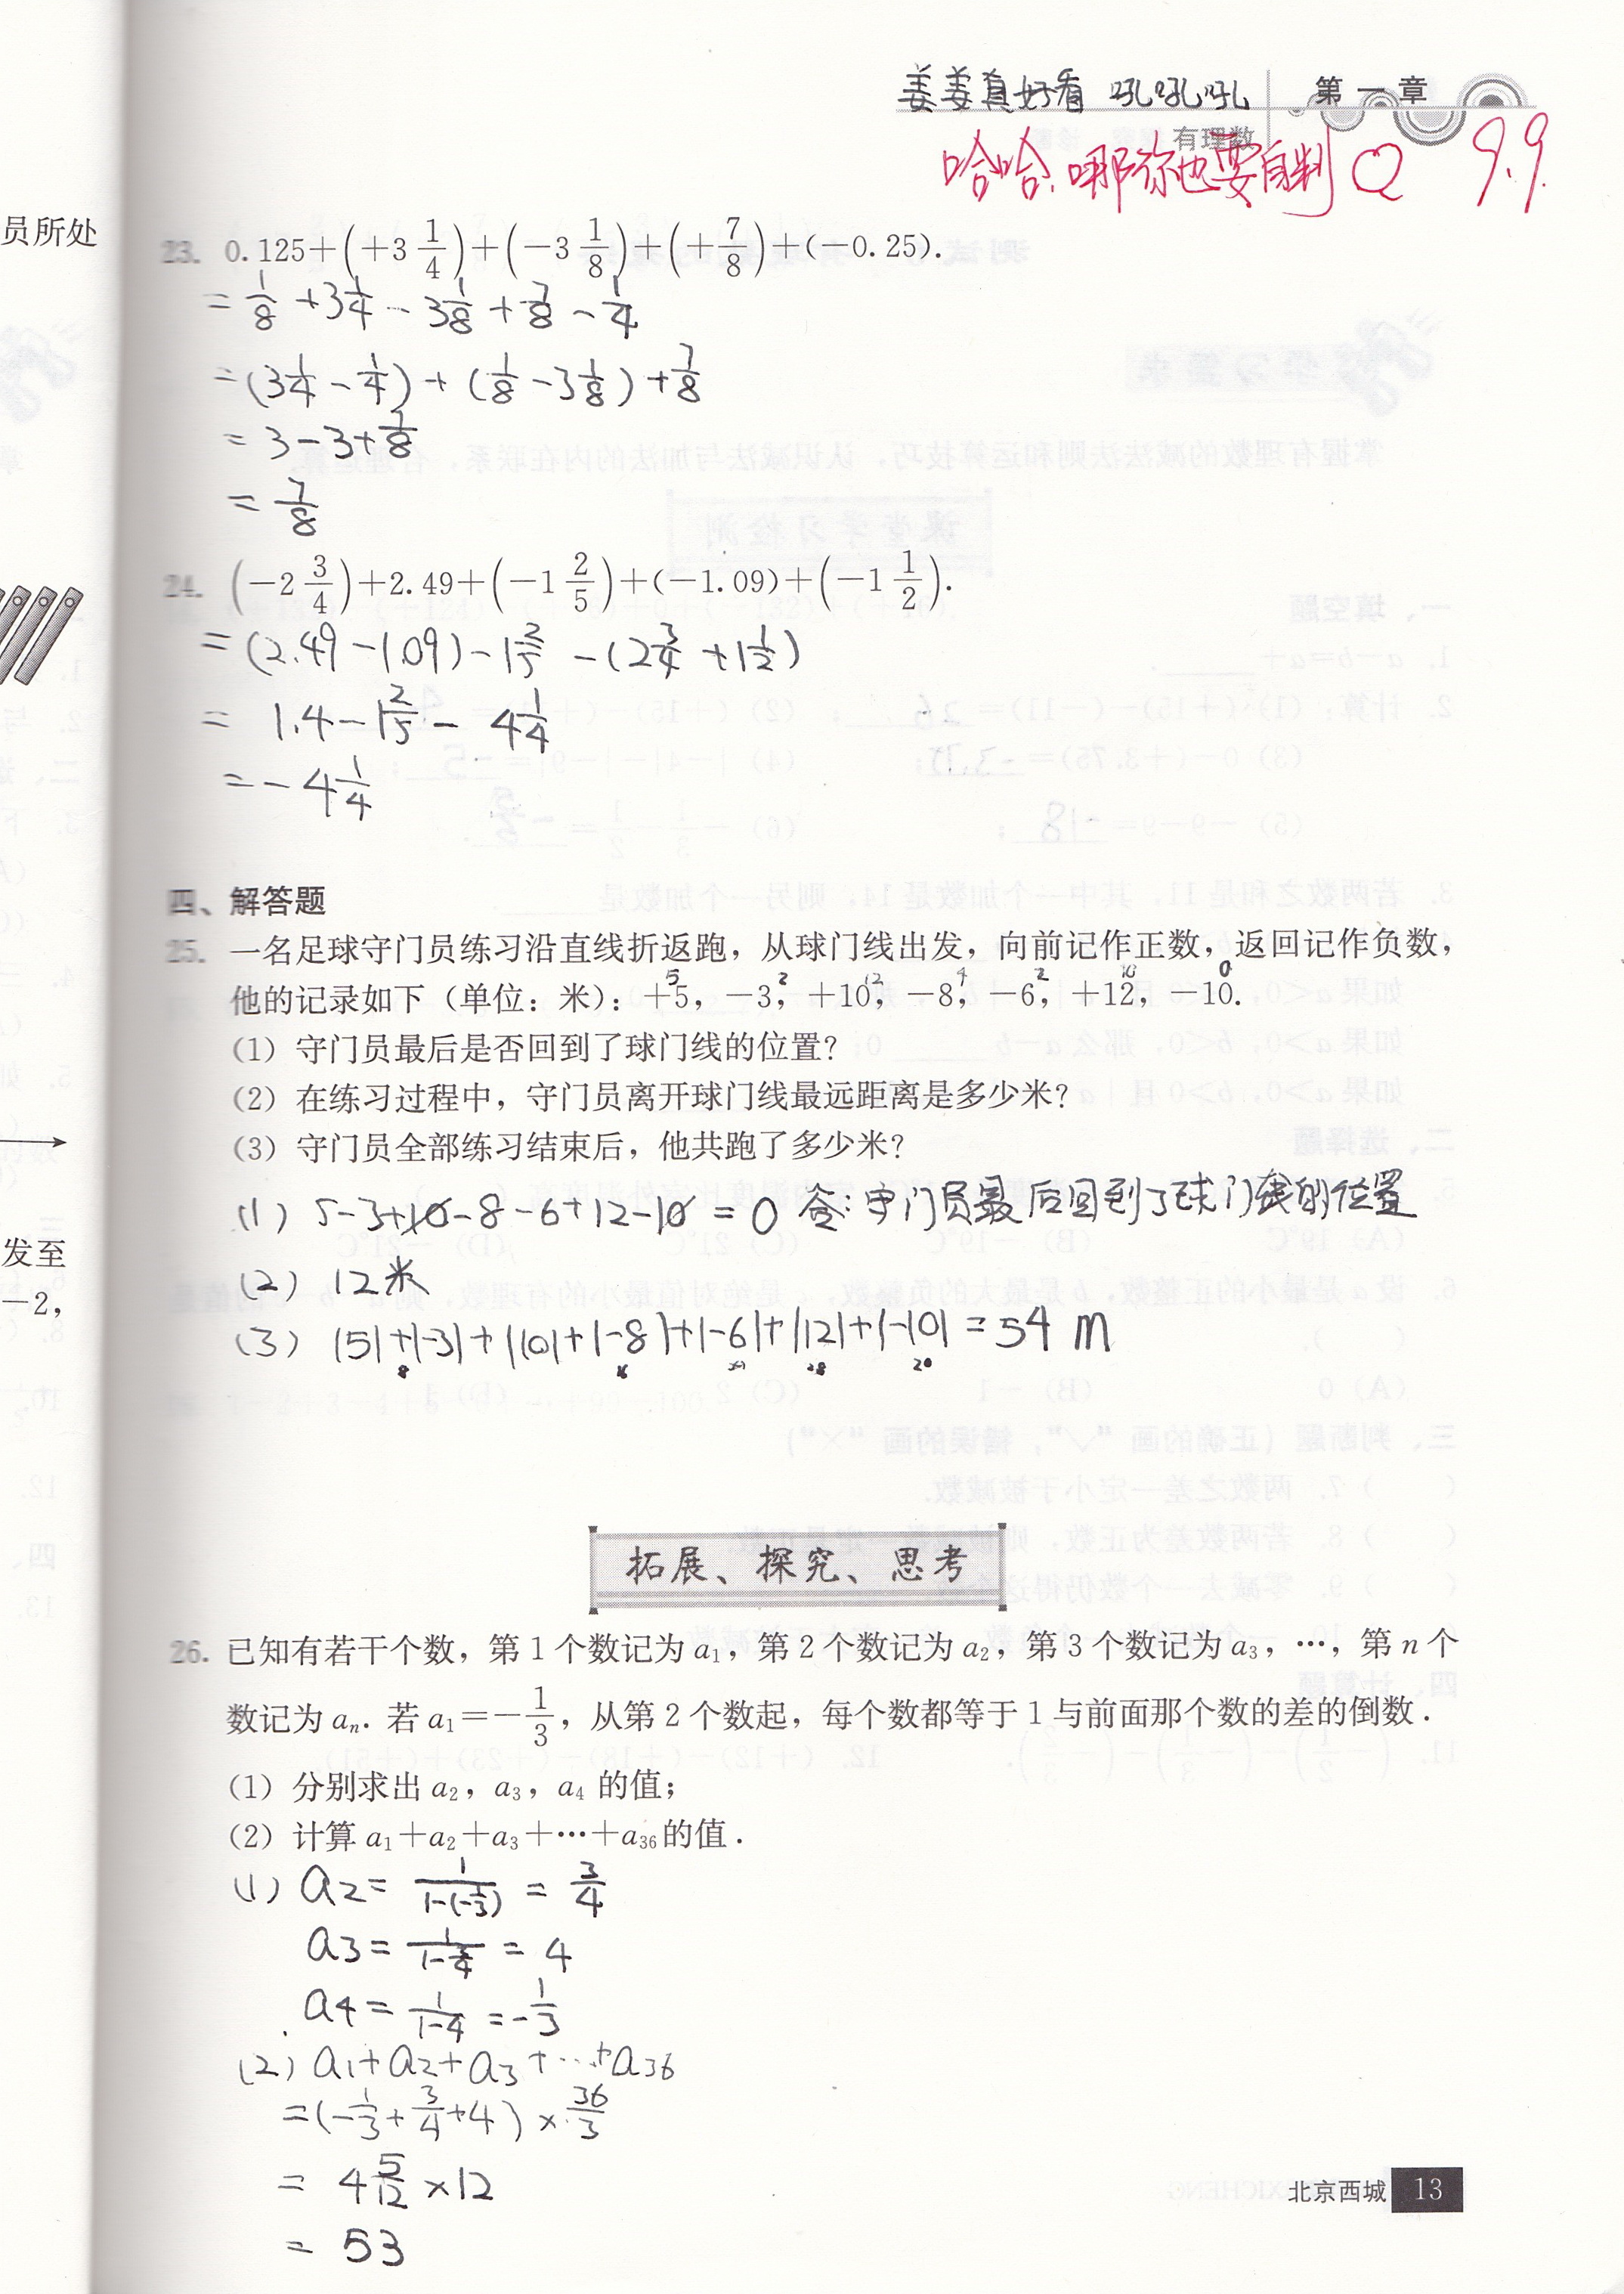 姜姜真好看 吼吼吼
第一章
有理数
哈哈.哪你也要自判 Q 9.9
员所处
23. 0.125+(+3 1/4)+(-3 1/8)+(+7/8)+(-0.25).
= 1/8 +3 1/4 - 3 1/8 + 7/8 - 1/4
=(3 1/4 - 1/4) + (1/8 - 3 1/8) + 7/8
= 3-3+7/8
= 7/8
24. (-2 3/4)+2.49+(-1 2/5)+(-1.09)+(-1 1/2).
= (2.49-1.09)-1 2/5 -(2 3/4 +1 1/2)
= 1.4-1 2/5 - 4 1/4
=-4 1/4
四、解答题
25. 一名足球守门员练习沿直线折返跑，从球门线出发，向前记作正数，返回记作负数，
5 2 12 4 2 10 0
他的记录如下（单位：米）：+5，-3，+10，-8，-6，+12，-10.
（1）守门员最后是否回到了球门线的位置？
（2）在练习过程中，守门员离开球门线最远距离是多少米？
（3）守门员全部练习结束后，他共跑了多少米？
(1) 5-3+10-8-6+12-10 = 0 答:守门员最后回到了球门线的位置
发至
(2) 12米
-2，
(3) |5|+|-3|+|10|+|-8|+|-6|+|12|+|-10| =54 m
拓展、探究、思考
26. 已知有若干个数，第1个数记为a₁，第2个数记为a₂，第3个数记为a₃，…，第n个
数记为aₙ. 若a₁=-1/3，从第2个数起，每个数都等于1与前面那个数的差的倒数.
（1）分别求出a₂，a₃，a₄的值；
（2）计算a₁+a₂+a₃+…+a₃₆的值.
(1) a₂= 1/(1-(-1/3)) = 3/4
a₃= 1/(1-3/4) = 4
a₄= 1/(1-4) =-1/3
(2) a₁+a₂+a₃+…+a₃₆
=(-1/3+3/4+4)×36/3
= 4 5/12 ×12
= 53
北京西城 13